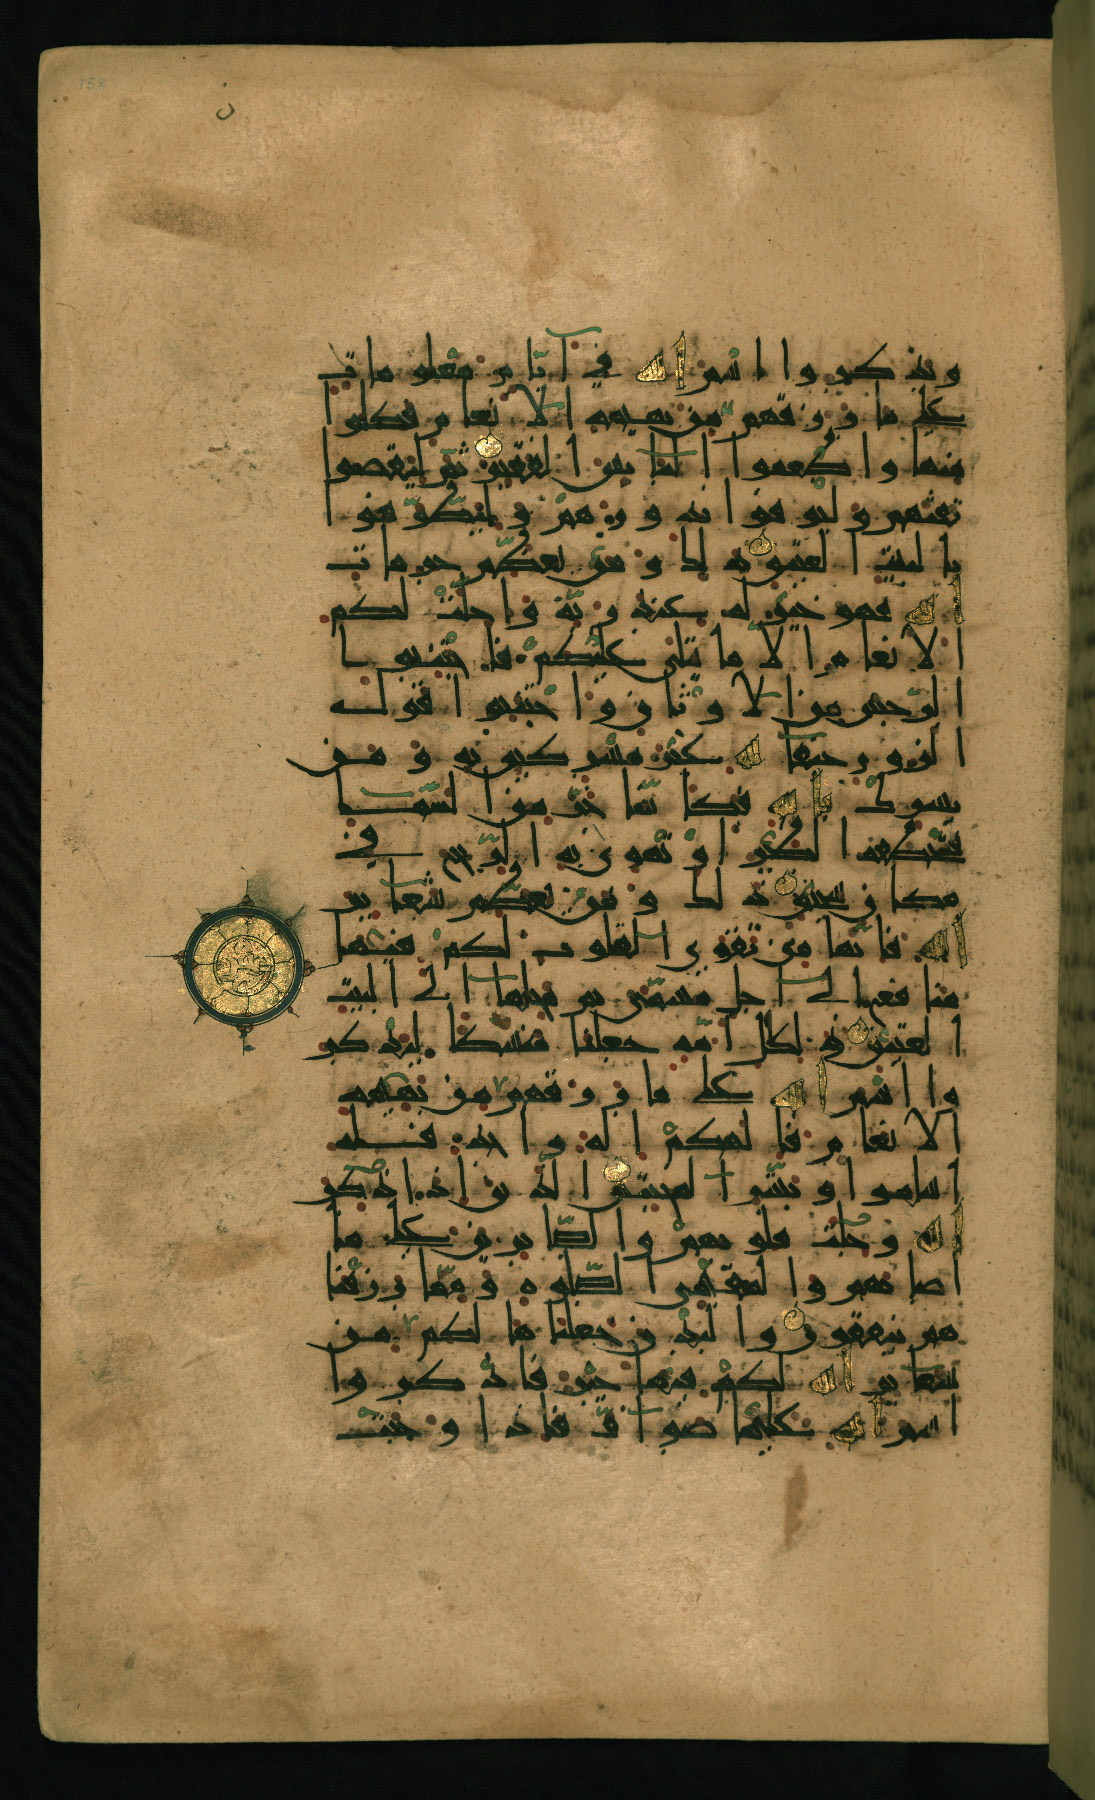 ن
ويذكروا اسم الله في أيام معلومات
على ما رزقهم من بهيمة الانعام فكلوا
منها واطعموا البايس الفقير ثم ليقضوا
تفثهم وليوفوا نذورهم وليطوفوا
بالبيت العتيق ذلك ومن يعظم حرمات
الله فهو خير له عند ربه واحلت لكم
الانعام الا ما يتلى عليكم فاجتنبوا
الرجس من الاوثان واجتنبوا قول
الزور حنفا لله غير مشركين به ومن
يشرك بالله فكانما خر من السما
فتخطفه الطير او تهوي به الريح في
مكان سحيق ذلك ومن يعظم شعاير
الله فانها من تقوى القلوب لكم فيها
منافع الى اجل مسمى ثم محلها الى البيت
العتيق ولكل امة جعلنا منسكا ليذكر
وا اسم الله على ما رزقهم من بهيمة
الانعام فالهكم اله واحد فله
اسلموا وبشر المخبتين الذين اذا ذكر
الله وجلت قلوبهم والصابرين على ما
اصابهم والمقيمي الصلوه ومما رزقنا
هم ينفقون والبدن جعلناها لكم من
شعاير الله لكم فيها خير فاذكروا
اسم الله عليها صواف فاذا وجبت